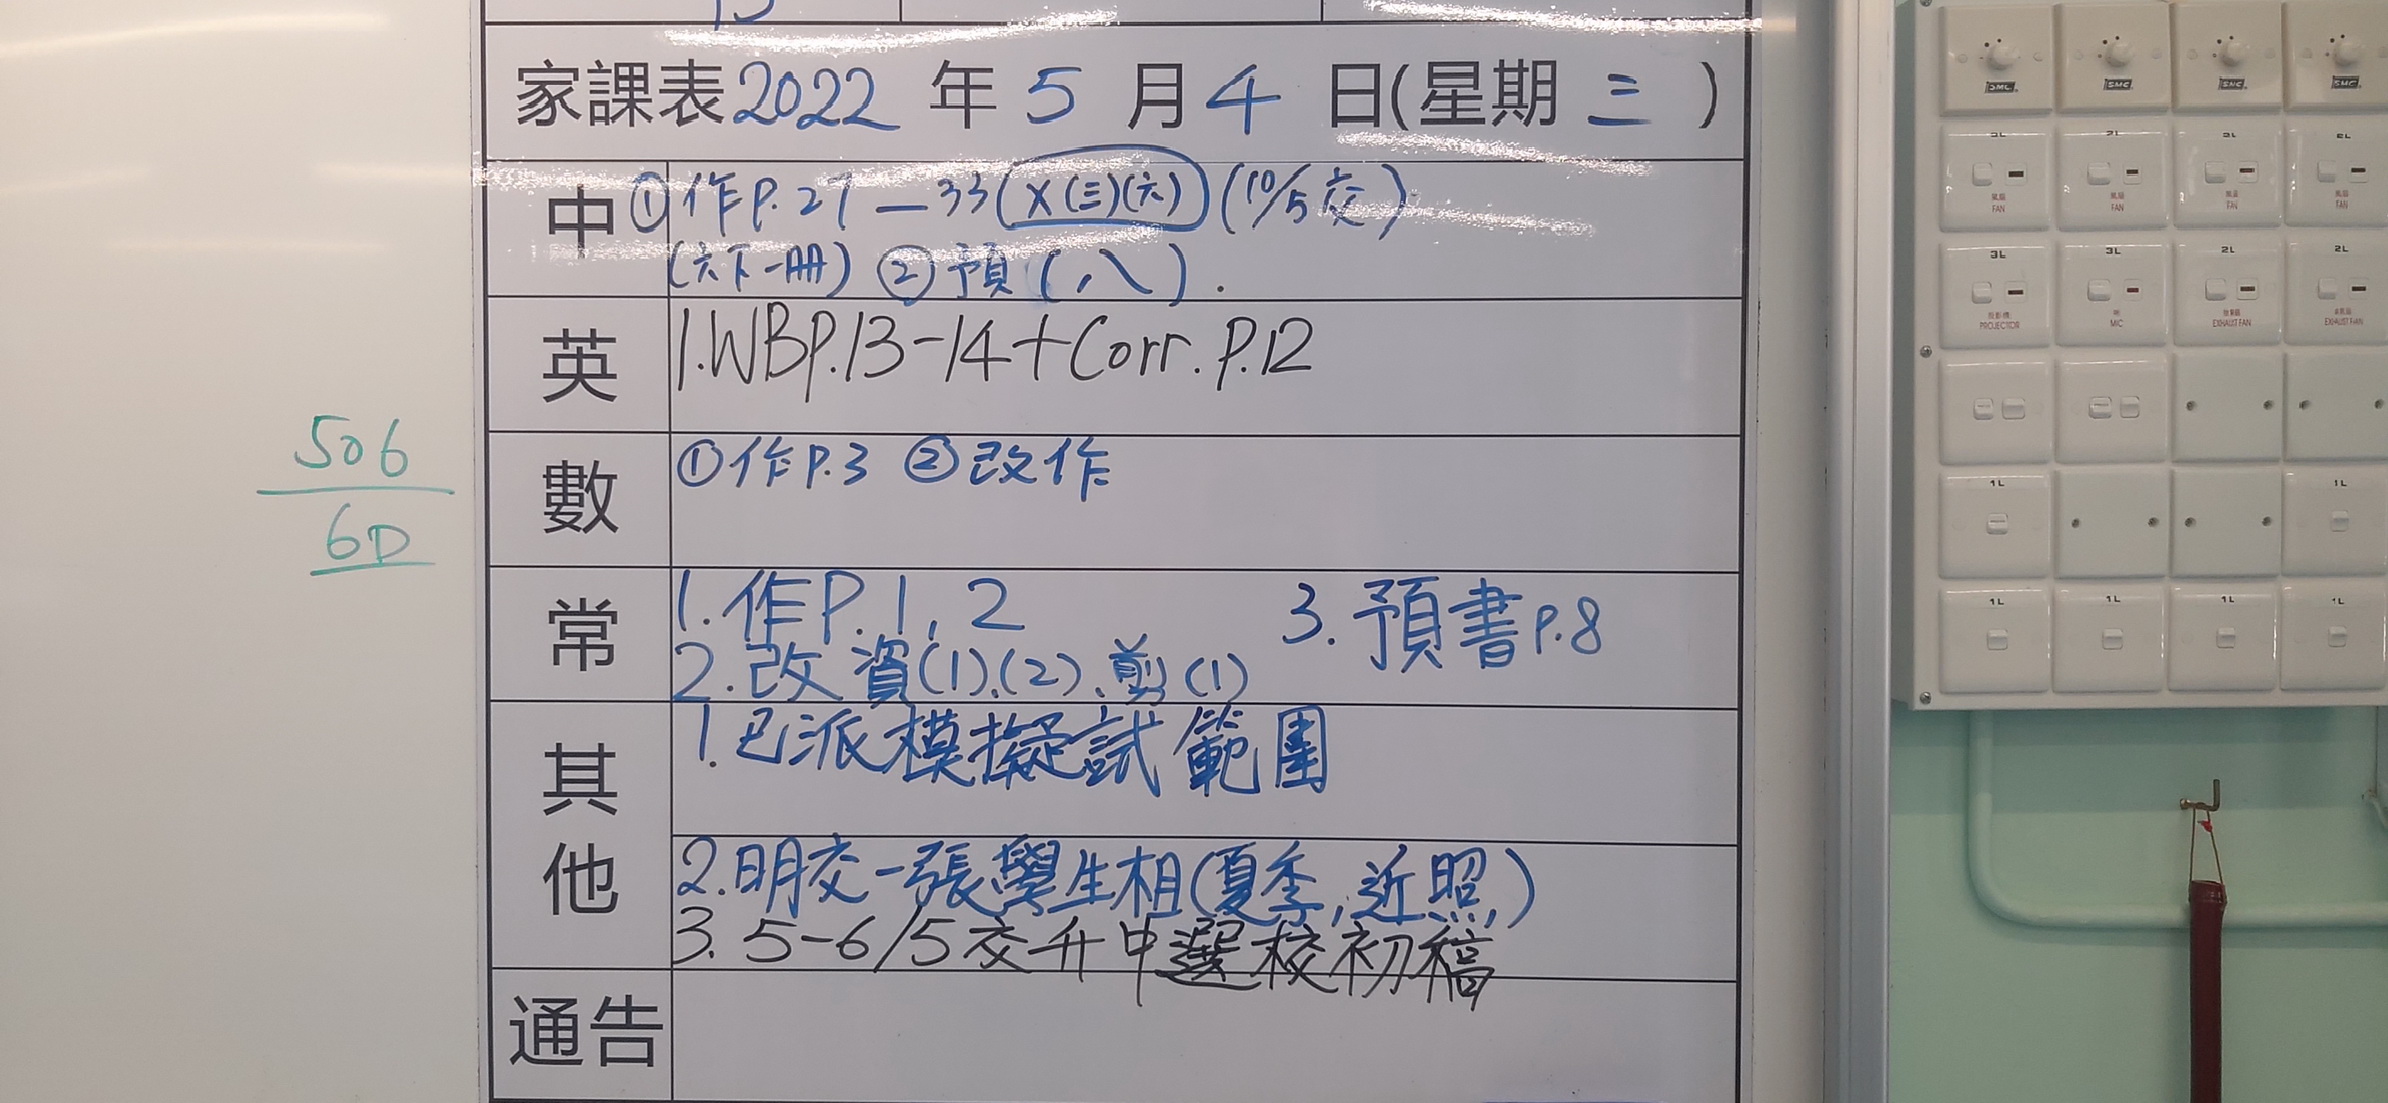 家課表2022 年 5 月 4 日(星期 三 )
中 ①作P.27—33(X(三)(六))(10/5交)
(六下一冊) ②預(,八).
英 1.WBP.13-14+Corr.P.12
數 ①作P.3 ②改作
常 1.作P.1,2 3.預書P.8
2.改資(1).(2).剪(1)
其他 1.已派模擬試範圍
2.明交一張學生相(夏季,近照,)
3.5-6/5交升中選校初稿
通告
506
6D
SMC SMC SMC SMC
2L 2L 2L 2L
風扇 FAN 風扇 FAN 風扇 FAN 風扇 FAN
3L 3L 2L 2L
投影機 PROJECTOR MIC EXHAUST FAN EXHAUST FAN
1L 1L
1L 1L 1L 1L